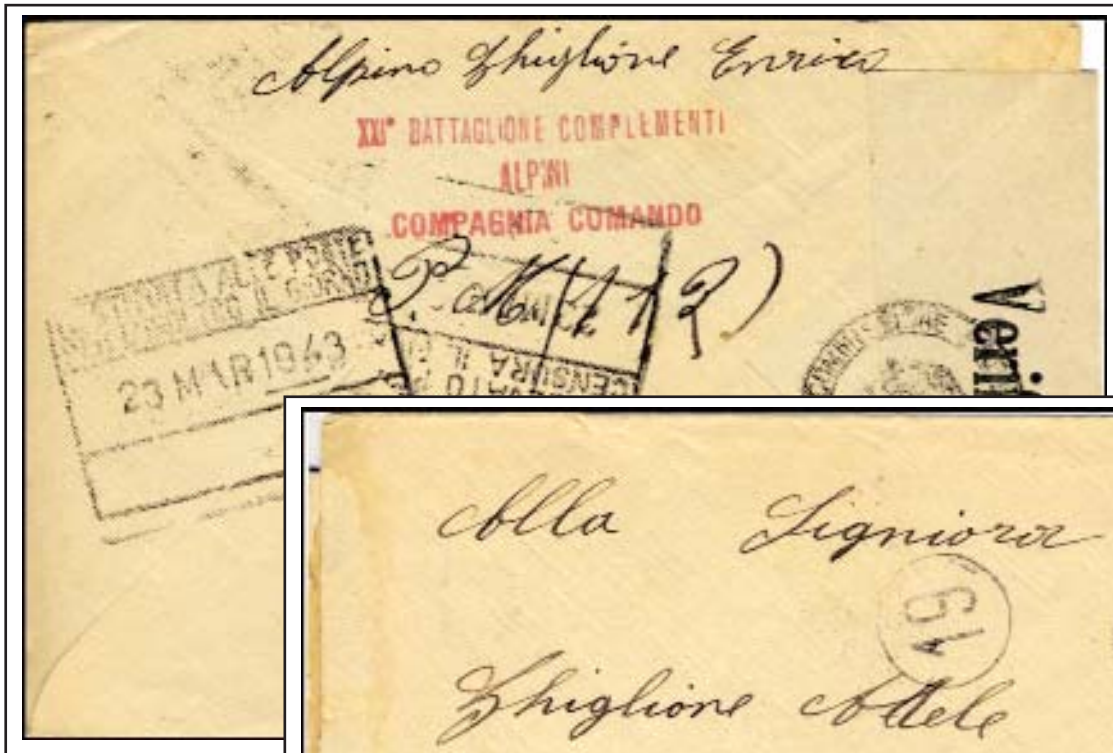 Alpino Ghiglione Enrico
XXI° BATTAGLIONE COMPLEMENTI
ALPINI
COMPAGNIA COMANDO
P.M. 112)
23 MAR 1943
CENSURA IL
Verif
Alla Signiora
19
Ghiglione Adele